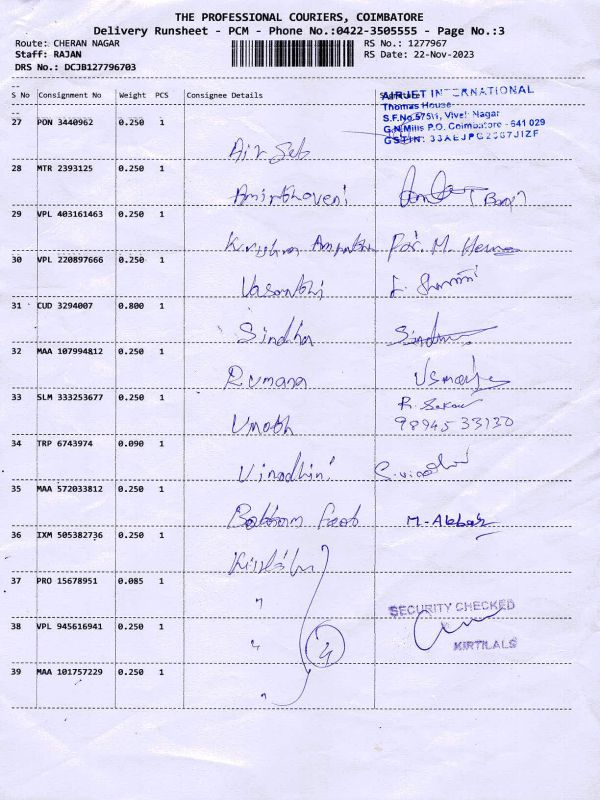 THE PROFESSIONAL COURIERS, COIMBATORE
Delivery Runsheet - PCM - Phone No.:0422-3505555 - Page No.:3
Route: CHERAN NAGAR RS No.: 1277967
Staff: RAJAN RS Date: 22-Nov-2023
DRS No.: DCJB127796703
S No Consignment No Weight PCS Consignee Details
AIRJET INTERNATIONAL
Thomas House
S.F.No.575/1, Vivek Nagar
G.N.Mills P.O. Coimbatore - 641 029
27 PON 3440962 0.250 1
28 MTR 2393125 0.250 1
29 VPL 403161463 0.250 1 Krishna
30 VPL 220897666 0.250 1 Vasanthi
31 CUD 3294007 0.800 1 Sindhu
32 MAA 107994812 0.250 1 Rumana
33 SLM 333253677 0.250 1 R. Sekar
98945 33130
34 TRP 6743974 0.090 1 Vinodhini
35 MAA 572033812 0.250 1 Bottom Foot M-Akbar
36 IXM 505382736 0.250 1
37 PRO 15678951 0.085 1
SECURITY CHECKED
38 VPL 945616941 0.250 1 4
KIRTILALS
39 MAA 101757229 0.250 1